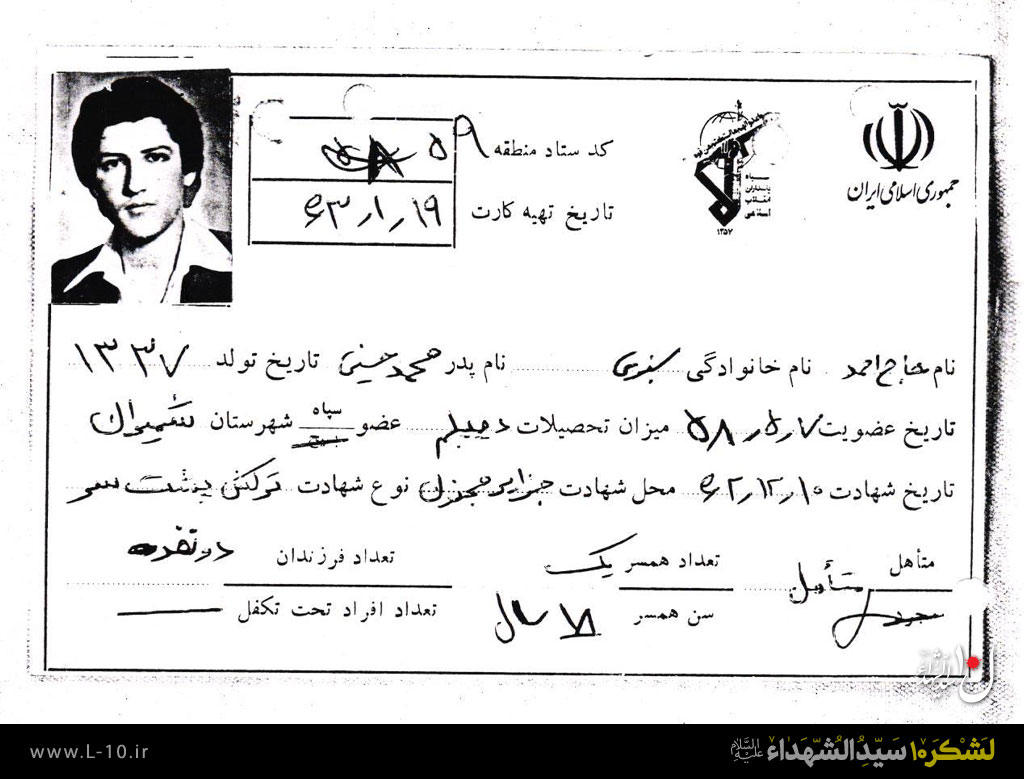 جمهوری اسلامی ایران
سپاه
پاسداران
انقلاب
اسلامی
۱۳۵۷
کد ستاد منطقه ۵۹
تاریخ تهیه کارت ۶۳/۱/۱۹
نام حاج احمد نام خانوادگی نام پدر محمد حسین تاریخ تولد ۱۳۳۷
تاریخ عضویت ۵۸/۵/۷ میزان تحصیلات دیپلم عضو سپاه بسیج شهرستان شمیران
تاریخ شهادت ۶۲/۱۲/۱۰ محل شهادت جزایر مجنون نوع شهادت ترکش پشت سر
متأهل مجرد متأهل تعداد همسر یک تعداد فرزندان دو نفر
سن همسر سال تعداد افراد تحت تکفل
www.L-10.ir
لشکر۱۰ سیدالشهداء علیه السلام